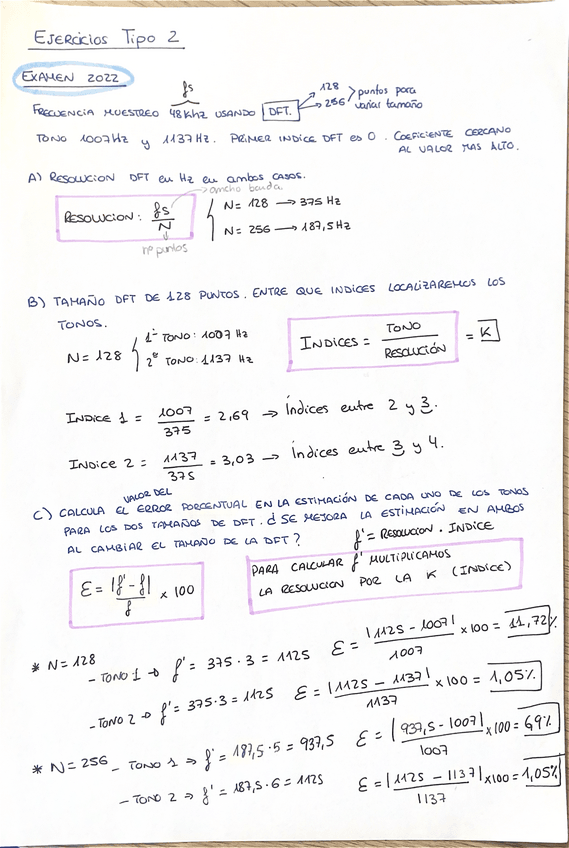 EJERCICIOS TIPO 2
EXAMEN 2022
fs
FRECUENCIA MUESTREO 48Khz USANDO DFT. → 128 → 256 > puntos para variar tamaño
TONO 1007Hz y 1137Hz. PRIMER INDICE DFT es 0. COEFICIENTE CERCANO
AL VALOR MAS ALTO.
A) RESOLUCION DFT en Hz en ambos casos.
→ ancho banda
RESOLUCION: fs/N
nº puntos
N = 128 → 375 Hz
N = 256 → 187,5Hz
B) TAMAÑO DFT DE 128 PUNTOS. ENTRE QUE INDICES LOCALIZAREMOS LOS
TONOS.
N = 128 { 1º TONO: 1007 Hz
2º TONO: 1137 Hz
INDICES = TONO/RESOLUCIÓN = K
INDICE 1 = 1007/375 = 2,69 → Índices entre 2 y 3.
INDICE 2 = 1137/375 = 3,03 → Índices entre 3 y 4.
VALOR DEL
C) CALCULA EL ERROR PORCENTUAL EN LA ESTIMACIÓN DE CADA UNO DE LOS TONOS
PARA LOS DOS TAMAÑOS DE DFT. ¿SE MEJORA LA ESTIMACIÓN EN AMBOS
AL CAMBIAR EL TAMAÑO DE LA DFT?
f' = RESOLUCION · INDICE
ε = |f' - f|/f × 100
PARA CALCULAR f' MULTIPLICAMOS
LA RESOLUCION POR LA K (INDICE)
* N = 128
- TONO 1 → f' = 375 · 3 = 1125 ε = |1125 - 1007|/1007 × 100 = 11,72%
- TONO 2 → f' = 375·3 = 1125 ε = |1125 - 1137|/1137 × 100 = 1,05%
* N = 256 - TONO 1 → f' = 187,5·5 = 937,5 ε = |937,5 - 1007|/1007 × 100 = 6,9%
- TONO 2 → f' = 187,5·6 = 1125 ε = |1125 - 1137|/1137 × 100 = 1,05%